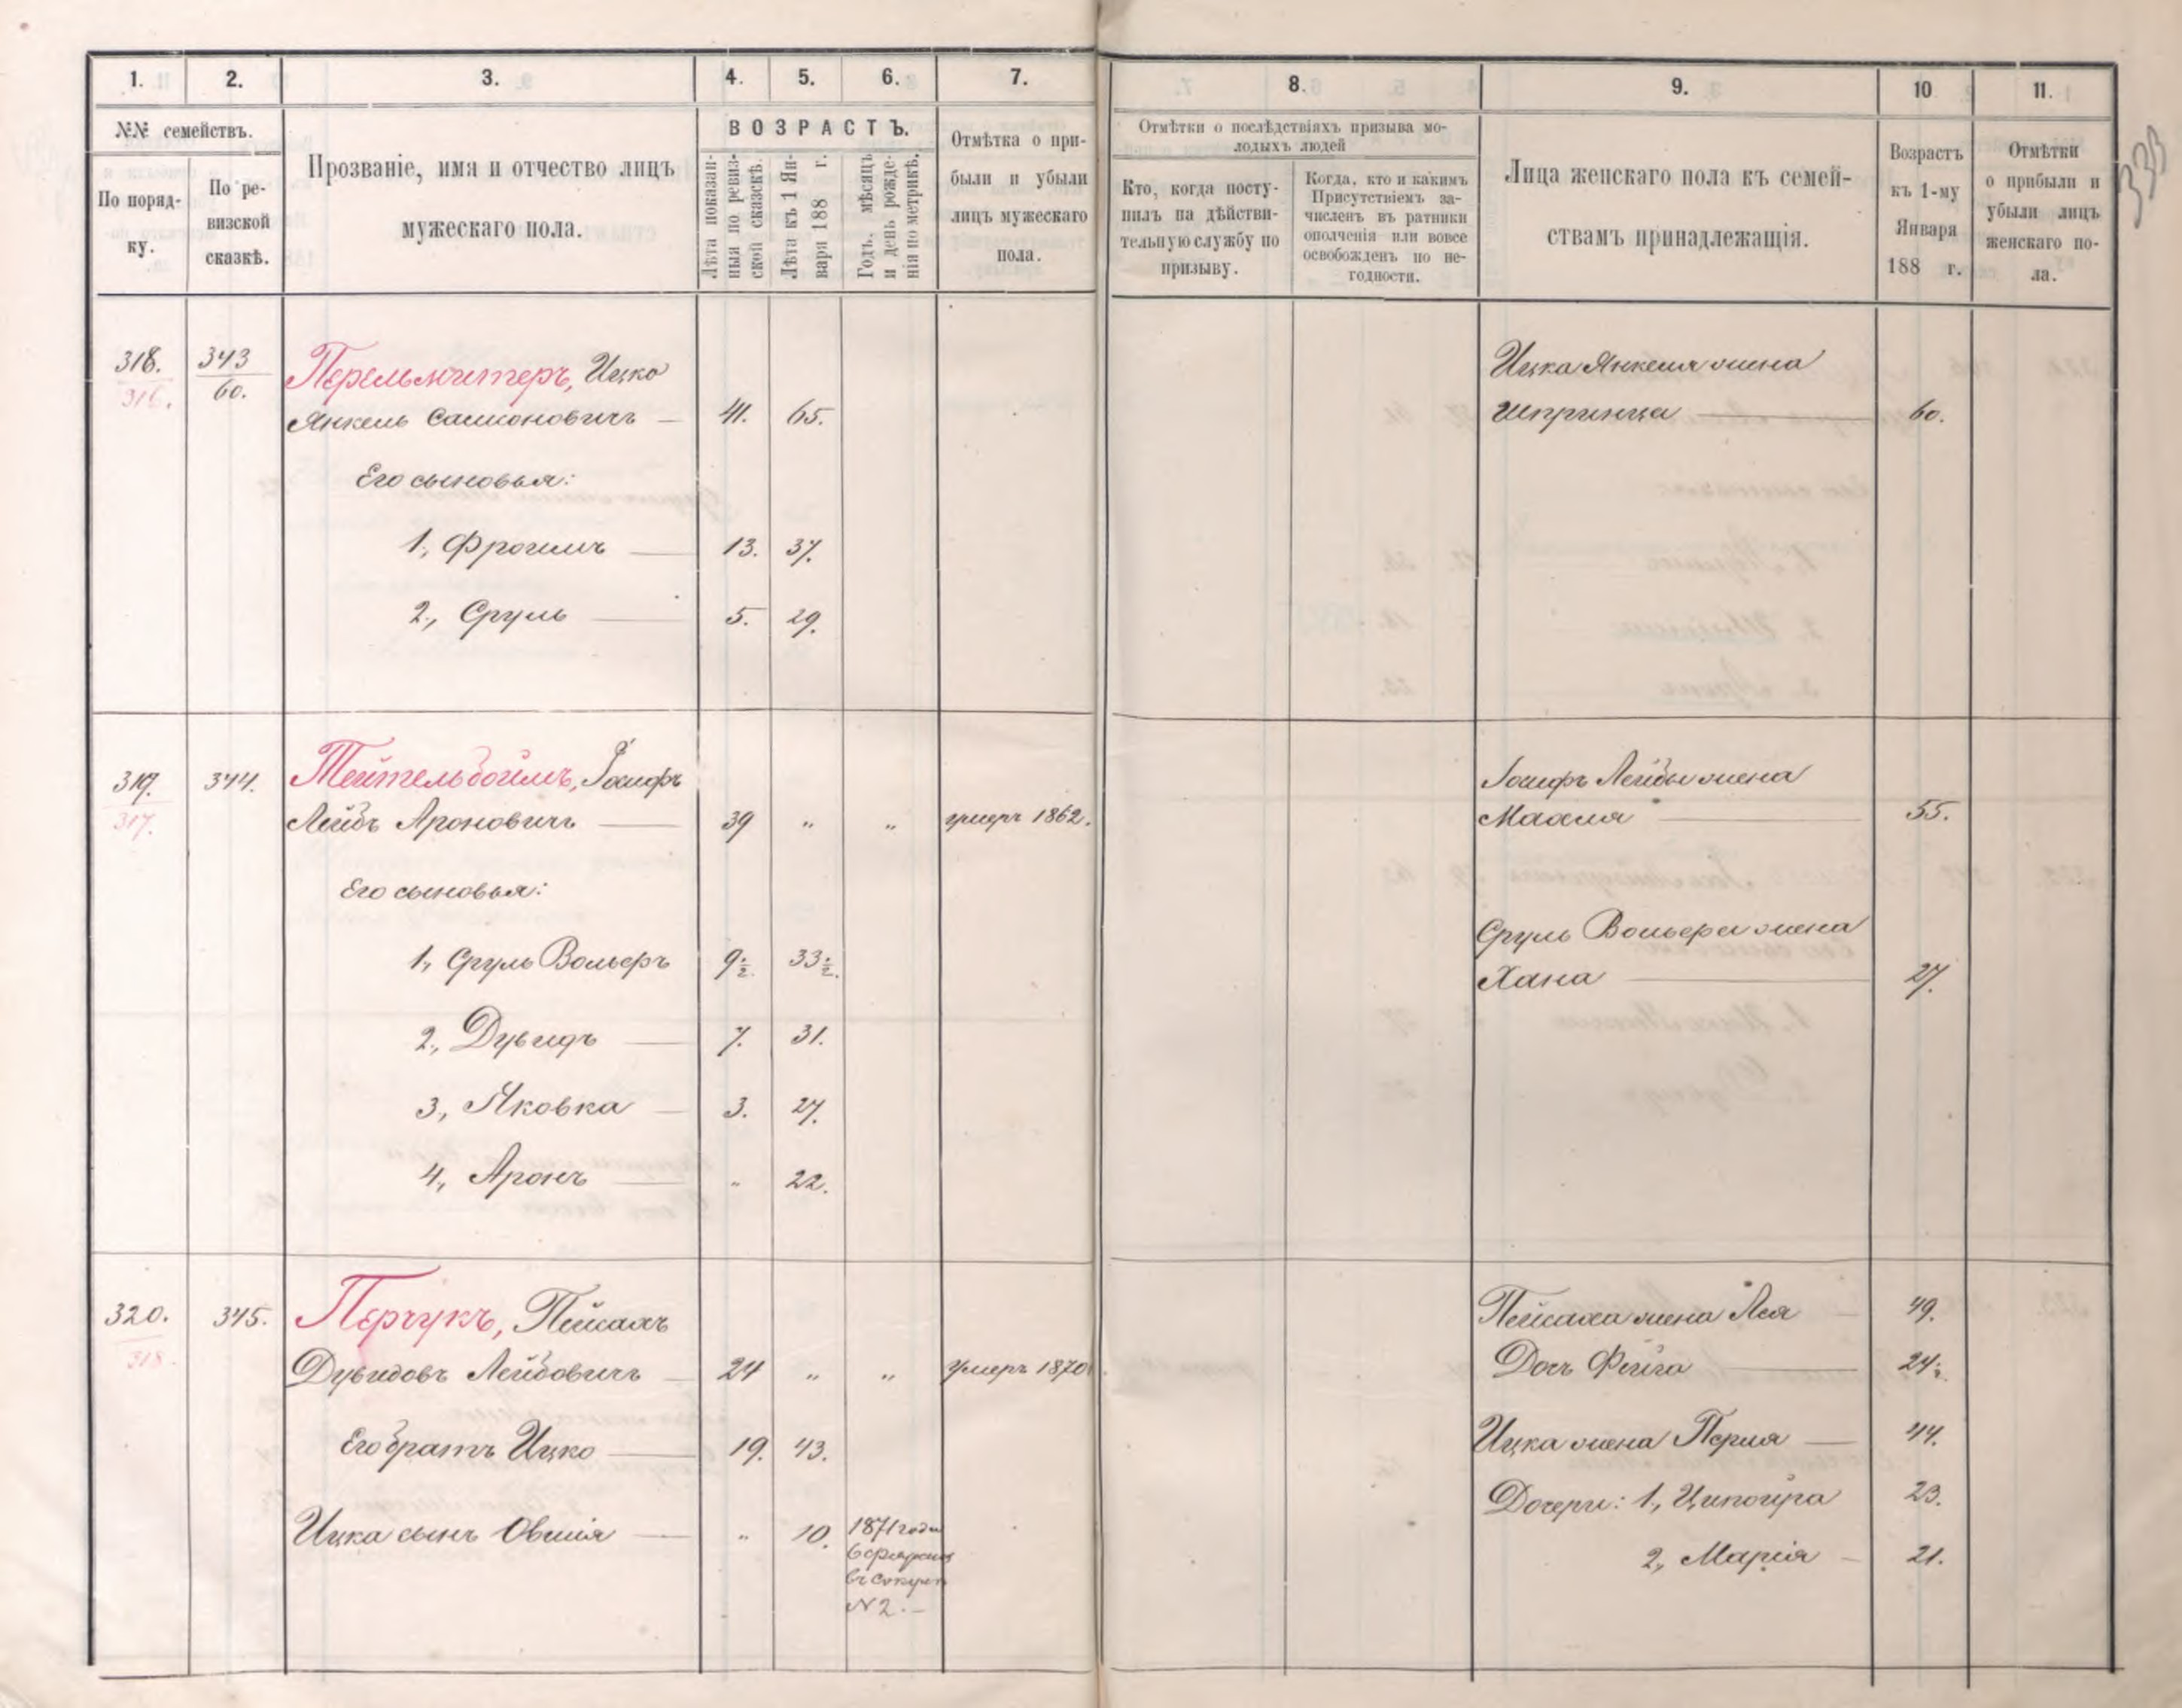 1. 2. 3. 4. 5. 6. 7. 8. 9. 10 11.
№№ семействъ.
По поряд-
ку.
По ре-
визской
сказкѣ.
Прозваніе, имя и отчество лицъ
мужескаго пола.
ВОЗРАСТЪ.
Лѣта показан-
ныя по ревиз-
ской сказкѣ.
Лѣта къ 1 Ян-
варя 188 г.
Годъ, мѣсяцъ
и день рожде-
нія по метрикѣ.
Отмѣтка о при-
были и убыли
лицъ мужескаго
пола.
Отмѣтки о послѣдствіяхъ призыва мо-
лодыхъ людей
Кто, когда посту-
пилъ на дѣйстви-
тельную службу по
призыву.
Когда, кто и какимъ
Присутствіемъ за-
численъ въ ратники
ополченія или вовсе
освобожденъ по не-
годности.
Лица женскаго пола къ семей-
ствамъ принадлежащія.
Возрастъ
къ 1-му
Января
188 г.
Отмѣтки
о прибыли и
убыли лицъ
женскаго по-
ла.
333
318. 343 Перельмитеръ, Ицко Ицка Янкеля жена
316. 60. Янкель Самсоновичъ — 41. 65. Шпринца — 60.
Его сыновья:
1, Фроимъ — 13. 37.
2, Сруль — 5. 29.
319. 344. Тейтельбоймъ, Іосифъ Іосифъ Лейбы жена
317. Лейбъ Ароновичъ — 39 " " умеръ 1862. Махля — 55.
Его сыновья:
1, Сруль Вольфъ 9½. 33½. Сруль Вольфа жена
Хана — 27.
2, Дувидъ — 7. 31.
3, Яковка — 3. 27.
4, Аронъ — " 22.
320. 345. Перчукъ, Пейсахъ Пейсаха жена Лея — 49.
318. Дувидовъ Лейбовичъ — 24 " " умеръ 1870 Дочь Фейга — 24½.
Его братъ Ицко — 19. 43. Ицка жена Перля — 44.
Ицка сынъ Овшія — " 10. 1871 года Дочери: 1, Ципойра 23.
6 февраля
№ 2. —
2, Марія — 21.